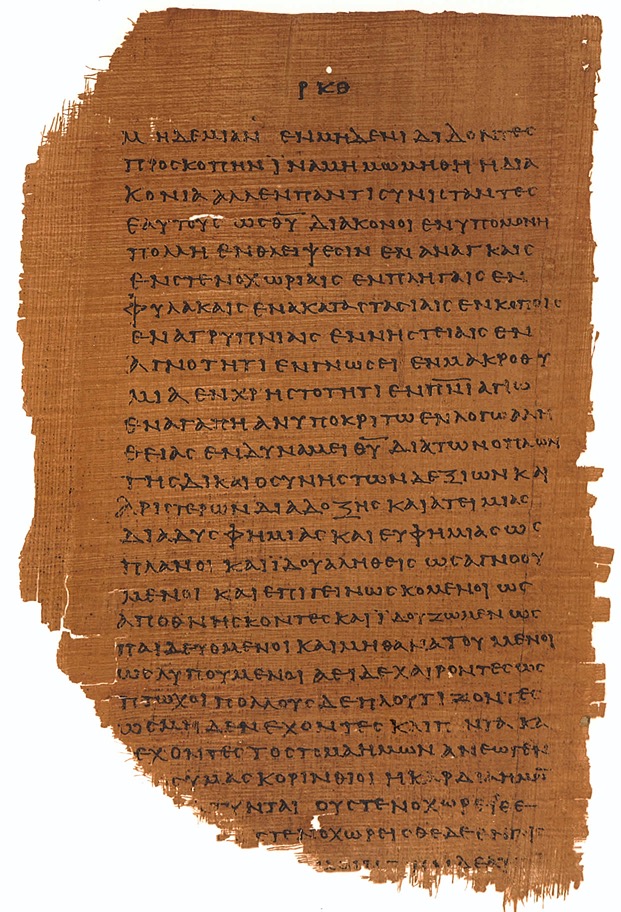 ΡΚΘ
ΜΗΔΕΜΙΑΝ ΕΝΜΗΔΕΝΙ ΔΙΔΟΝΤΕϹ
ΠΡΟϹΚΟΠΗΝ ΪΝΑΜΗ ΜΩΜΗΘΗ Η ΔΙΑ
ΚΟΝΙΑ ΑΛΛΕΝΠΑΝΤΙ ϹΥΝΙϹΤΑΝΤΕϹ
ΕΑΥΤΟΥϹ ΩϹ Θ̅Υ̅ ΔΙΑΚΟΝΟΙ ΕΝΥΠΟΜΟΝΗ
ΠΟΛΛΗ ΕΝΘΛΕΙΨΕϹΙΝ ΕΝ ΑΝΑΓΚΑΙϹ
ΕΝϹΤΕΝΟΧΩΡΙΑΙϹ ΕΝΠΛΗΓΑΙϹ ΕΝ
ΦΥΛΑΚΑΙϹ ΕΝΑΚΑΤΑϹΤΑϹΙΑΙϹ ΕΝΚΟΠΟΙϹ
ΕΝΑΓΡΥΠΝΙΑΙϹ ΕΝΝΗϹΤΕΙΑΙϹ ΕΝ
ΑΓΝΟΤΗΤΙ ΕΝΓΝΩϹΕΙ ΕΝΜΑΚΡΟΘΥ
ΜΙΑ ΕΝΧΡΗϹΤΟΤΗΤΙ ΕΝΠ̅Ν̅Ι̅ ΑΓΙΩ
ΕΝΑΓΑΠΗ ΑΝΥΠΟΚΡΙΤΩ ΕΝΛΟΓΩ ΑΛΗ
ΘΕΙΑϹ ΕΝΔΥΝΑΜΕΙ Θ̅Υ̅ ΔΙΑΤΩΝΟΠΛΩΝ
ΤΗϹΔΙΚΑΙΟϹΥΝΗϹ ΤΩΝΔΕΞΙΩΝ ΚΑΙ
ΑΡΙϹΤΕΡΩΝ ΔΙΑΔΟΞΗϹ ΚΑΙΑΤΕΙΜΙΑϹ
ΔΙΑΔΥϹΦΗΜΙΑϹ ΚΑΙ ΕΥΦΗΜΙΑϹ ΩϹ
ΠΛΑΝΟΙ ΚΑΙΪΔΟΥΑΛΗΘΕΙϹ ΩϹΑΓΝΟΟΥ
ΜΕΝΟΙ ΚΑΙ ΕΠΙΓΕΙΝΩϹΚΟΜΕΝΟΙ ΩϹ
ΑΠΟΘΝΗϹΚΟΝΤΕϹ ΚΑΙΪΔΟΥΖΩΜΕΝ ΩϹ
ΠΑΙΔΕΥΟΜΕΝΟΙ ΚΑΙΜΗΘΑΝΑΤΟΥΜΕΝΟΙ
ΩϹΛΥΠΟΥΜΕΝΟΙ ΑΕΙΔΕΧΑΙΡΟΝΤΕϹ ΩϹ
ΠΤΩΧΟΙ ΠΟΛΛΟΥϹ ΔΕΠΛΟΥΤΙΖΟΝΤΕϹ
ΩϹΜΗΔΕΝ ΕΧΟΝΤΕϹ ΚΑΙΠ ΝΤΑ ΚΑ
ΕΧΟΝΤΕϹ ΤΟϹΤΟΜΑΗΜΩΝ ΑΝΕΩΓΕΝ
ΥΜΑϹ ΚΟΡΙΝΘΙΟΙ Η ΚΑΡΔΙΑ
ΤΥΝΤΑΙ ΟΥϹΤΕΝΟΧΩΡΕΙϹΕ
ϹΤΕΝΟΧΩΡΕΙϹΘΕ ΔΕ